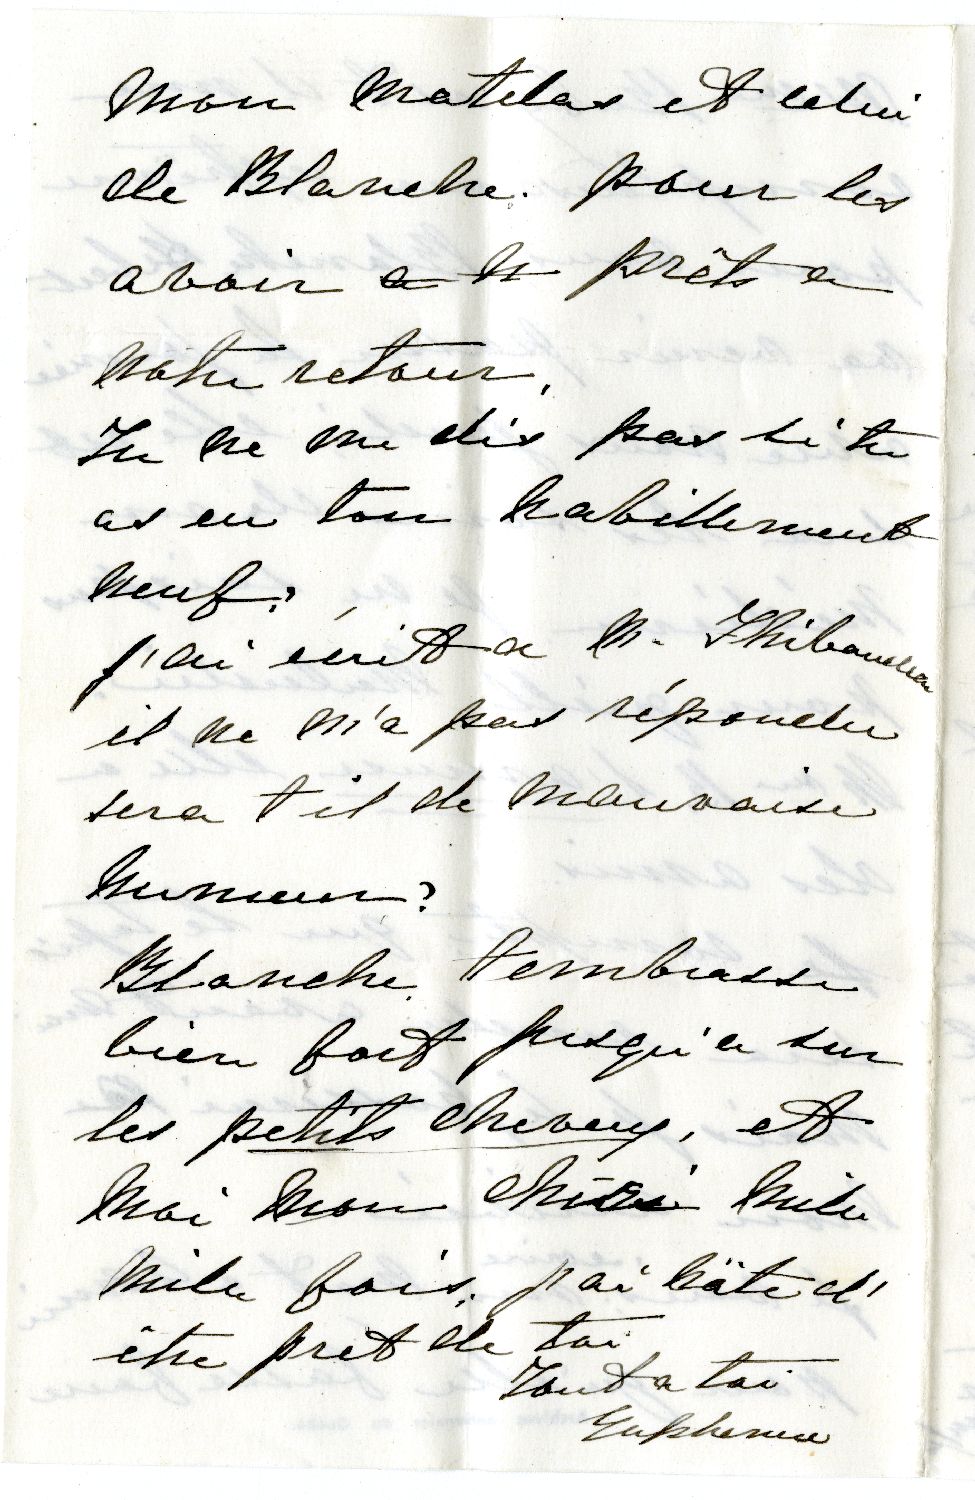 mon matelas et celui
de Blanche. pour les
avoir prêts a
notre retour.
Tu ne me dis pas si tu
as eu ton habillement
neuf?
j'ai écrit a M. Thibaudeau
il ne m'a pas répondu
sera t il de mauvaise
humeur?
Blanche t'embrasse
bien fort jusqu'a sur
les petits cheveux, et
moi mon chéri mile
mile fois, j'ai hâte d'
être pret de toi
Tout a toi
Euphemie